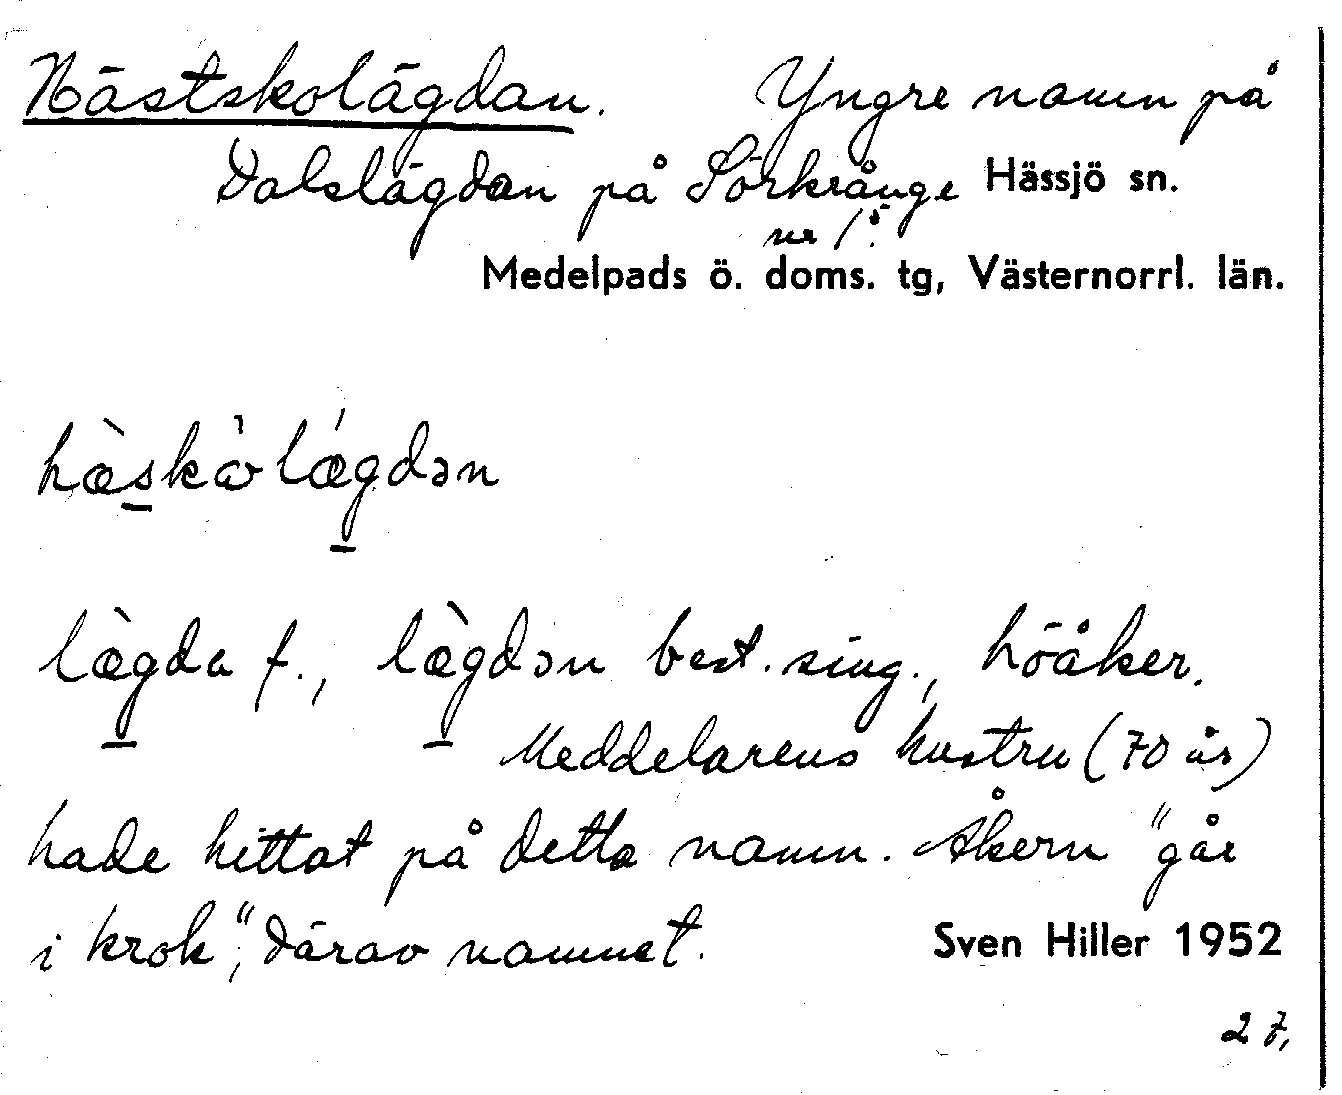 Hästskolägdan. Yngre namn på
Dalslägdan på Sörkrånge Hässjö sn.
nr 1⁵.
Medelpads ö. doms. tg, Västernorrl. län.
lægda f., lægdən best. sing., höåker.
Meddelarens hustru (70 år)
hade hittat på detta namn. Åkern "går
i krok", därav namnet. Sven Hiller 1952